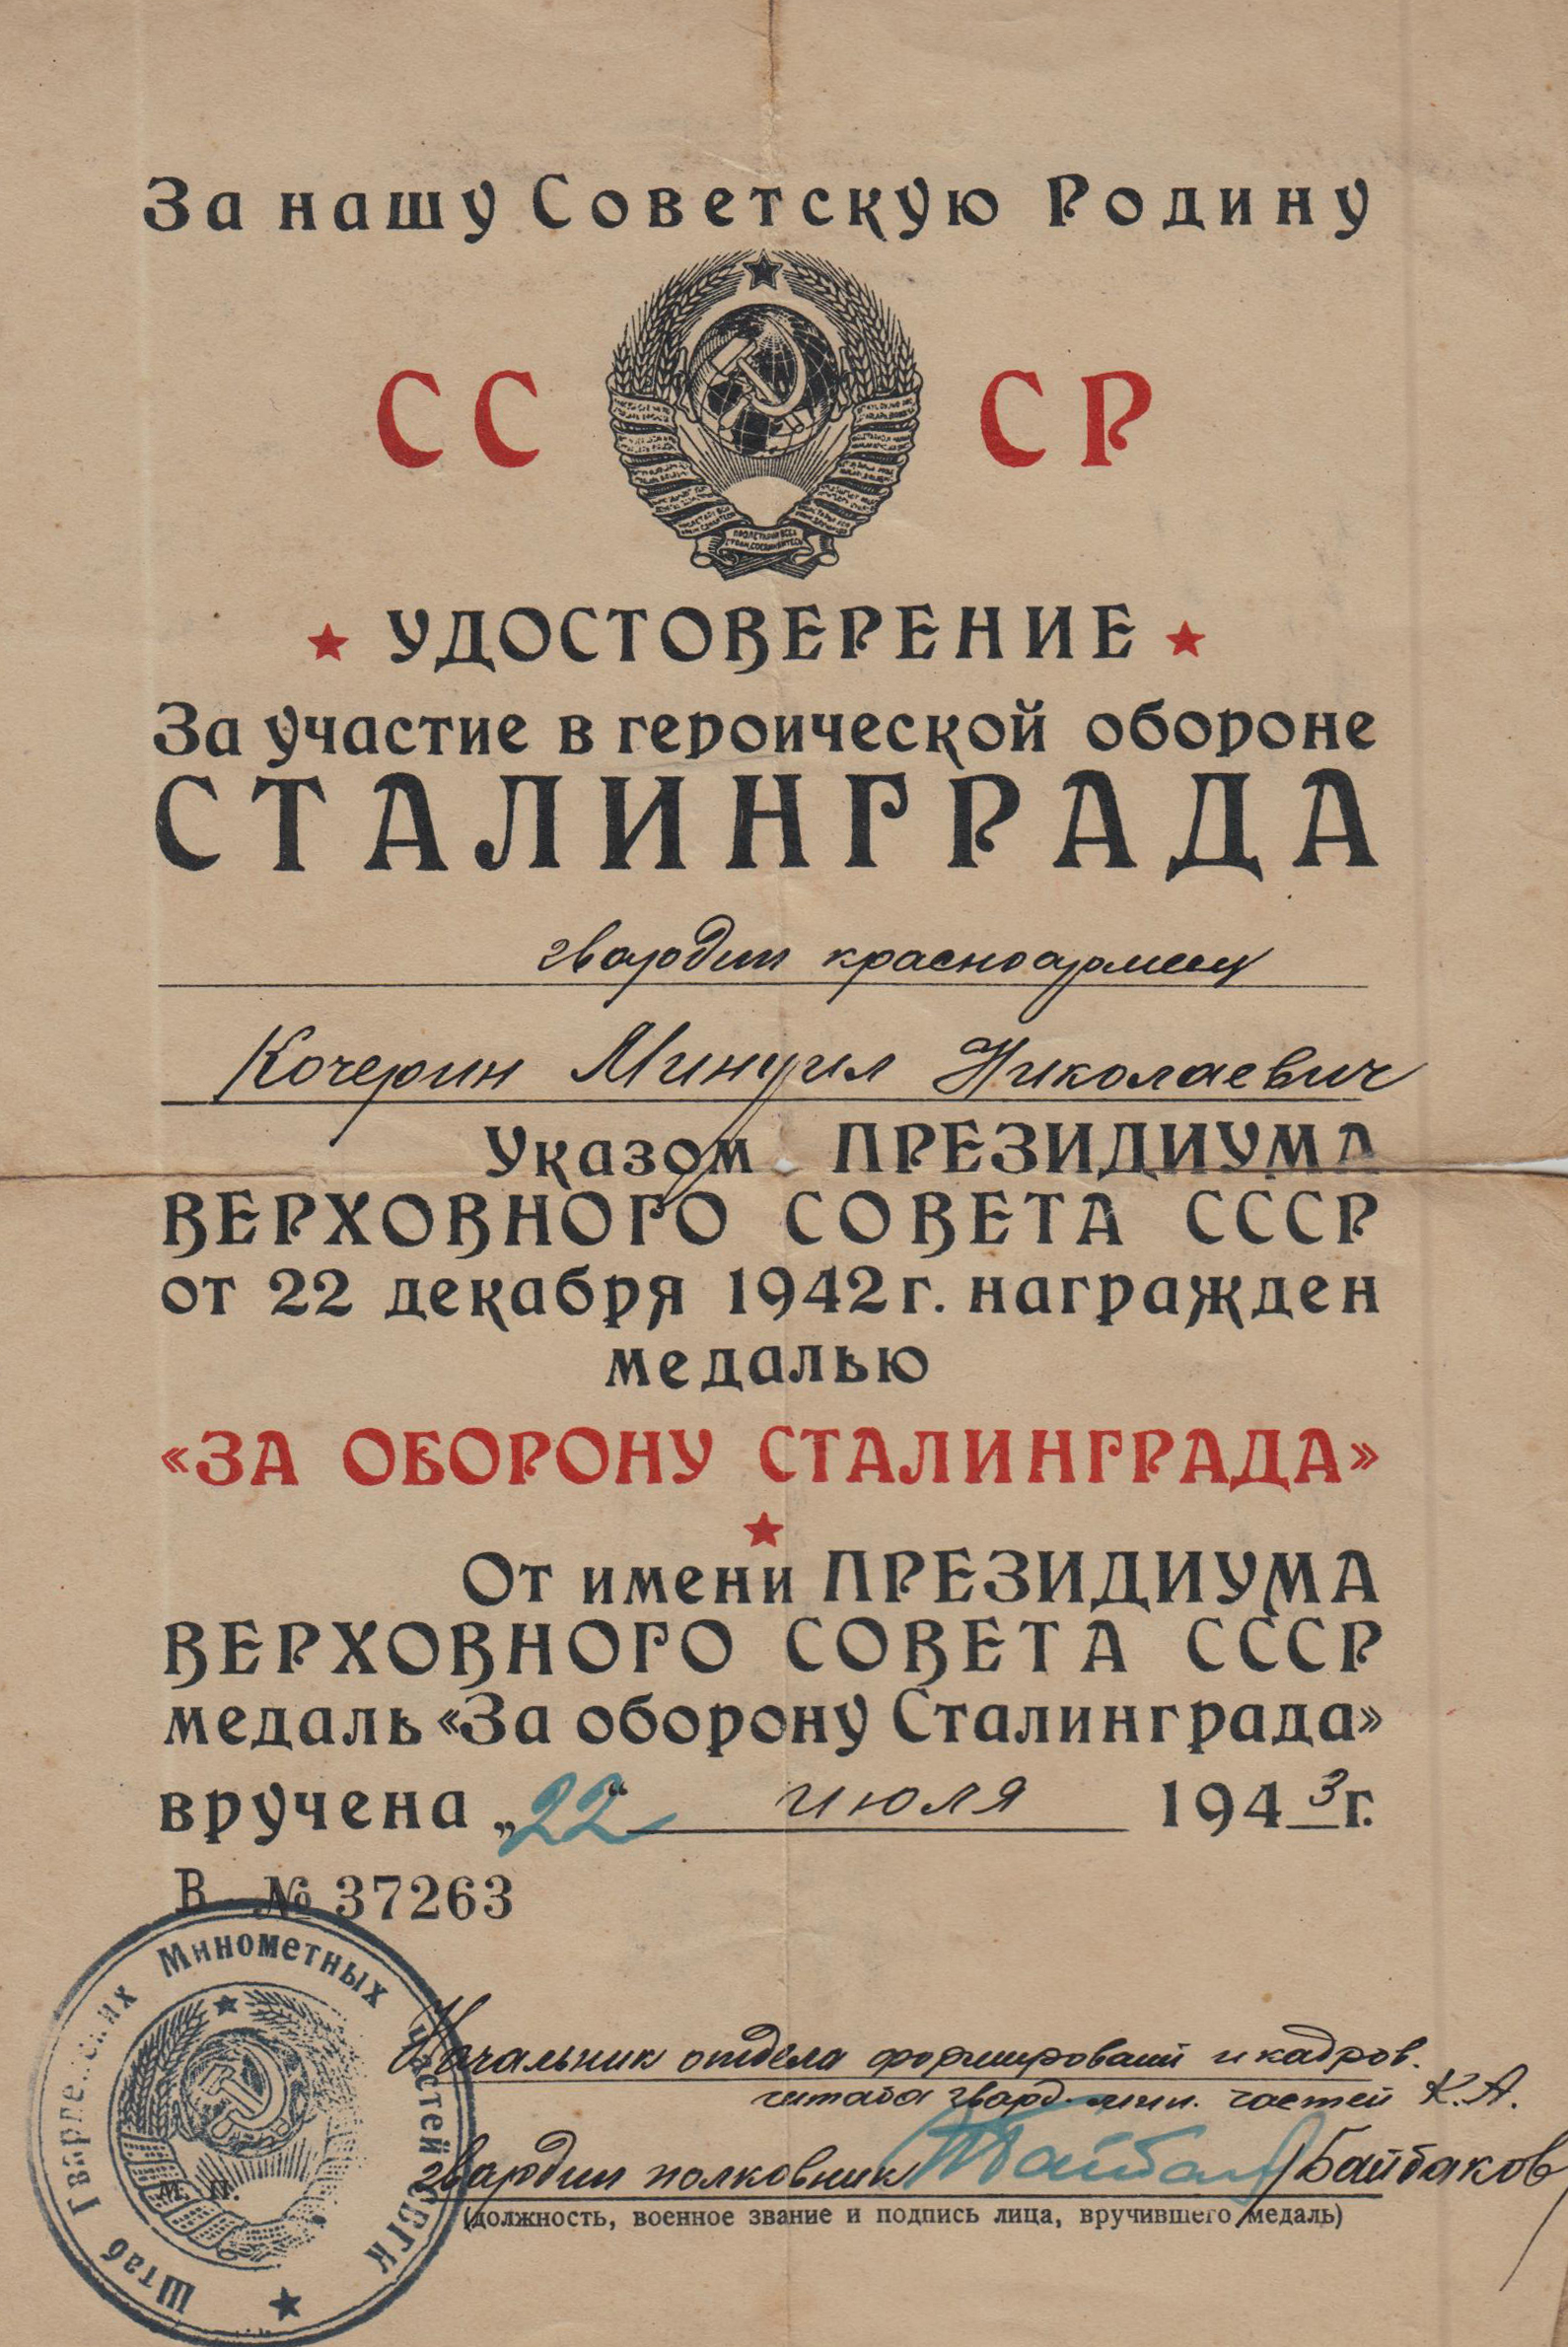 За нашу Советскую Родину
СС СР
ПРОЛЕТАРИИ ВСЕХ
СТРАН, СОЕДИНЯЙТЕСЬ
УДОСТОВЕРЕНИЕ
За участие в героической обороне
СТАЛИНГРАДА
гвардии красноармеец
Кочерин Минуил Николаевич
Указом ПРЕЗИДИУМА
ВЕРХОВНОГО СОВЕТА СССР
от 22 декабря 1942 г. награжден
медалью
«ЗА ОБОРОНУ СТАЛИНГРАДА»
От имени ПРЕЗИДИУМА
ВЕРХОВНОГО СОВЕТА СССР
медаль «За оборону Сталинграда»
вручена „22“ июля 1943 г.
В № 37263
Штаб Гвардейских Минометных частей СВГК
М. П.
Начальник отдела формирований и кадров.
штаба гвард. мин. частей К.А.
гвардии полковник Байбаков
(должность, военное звание и подпись лица, вручившего медаль)